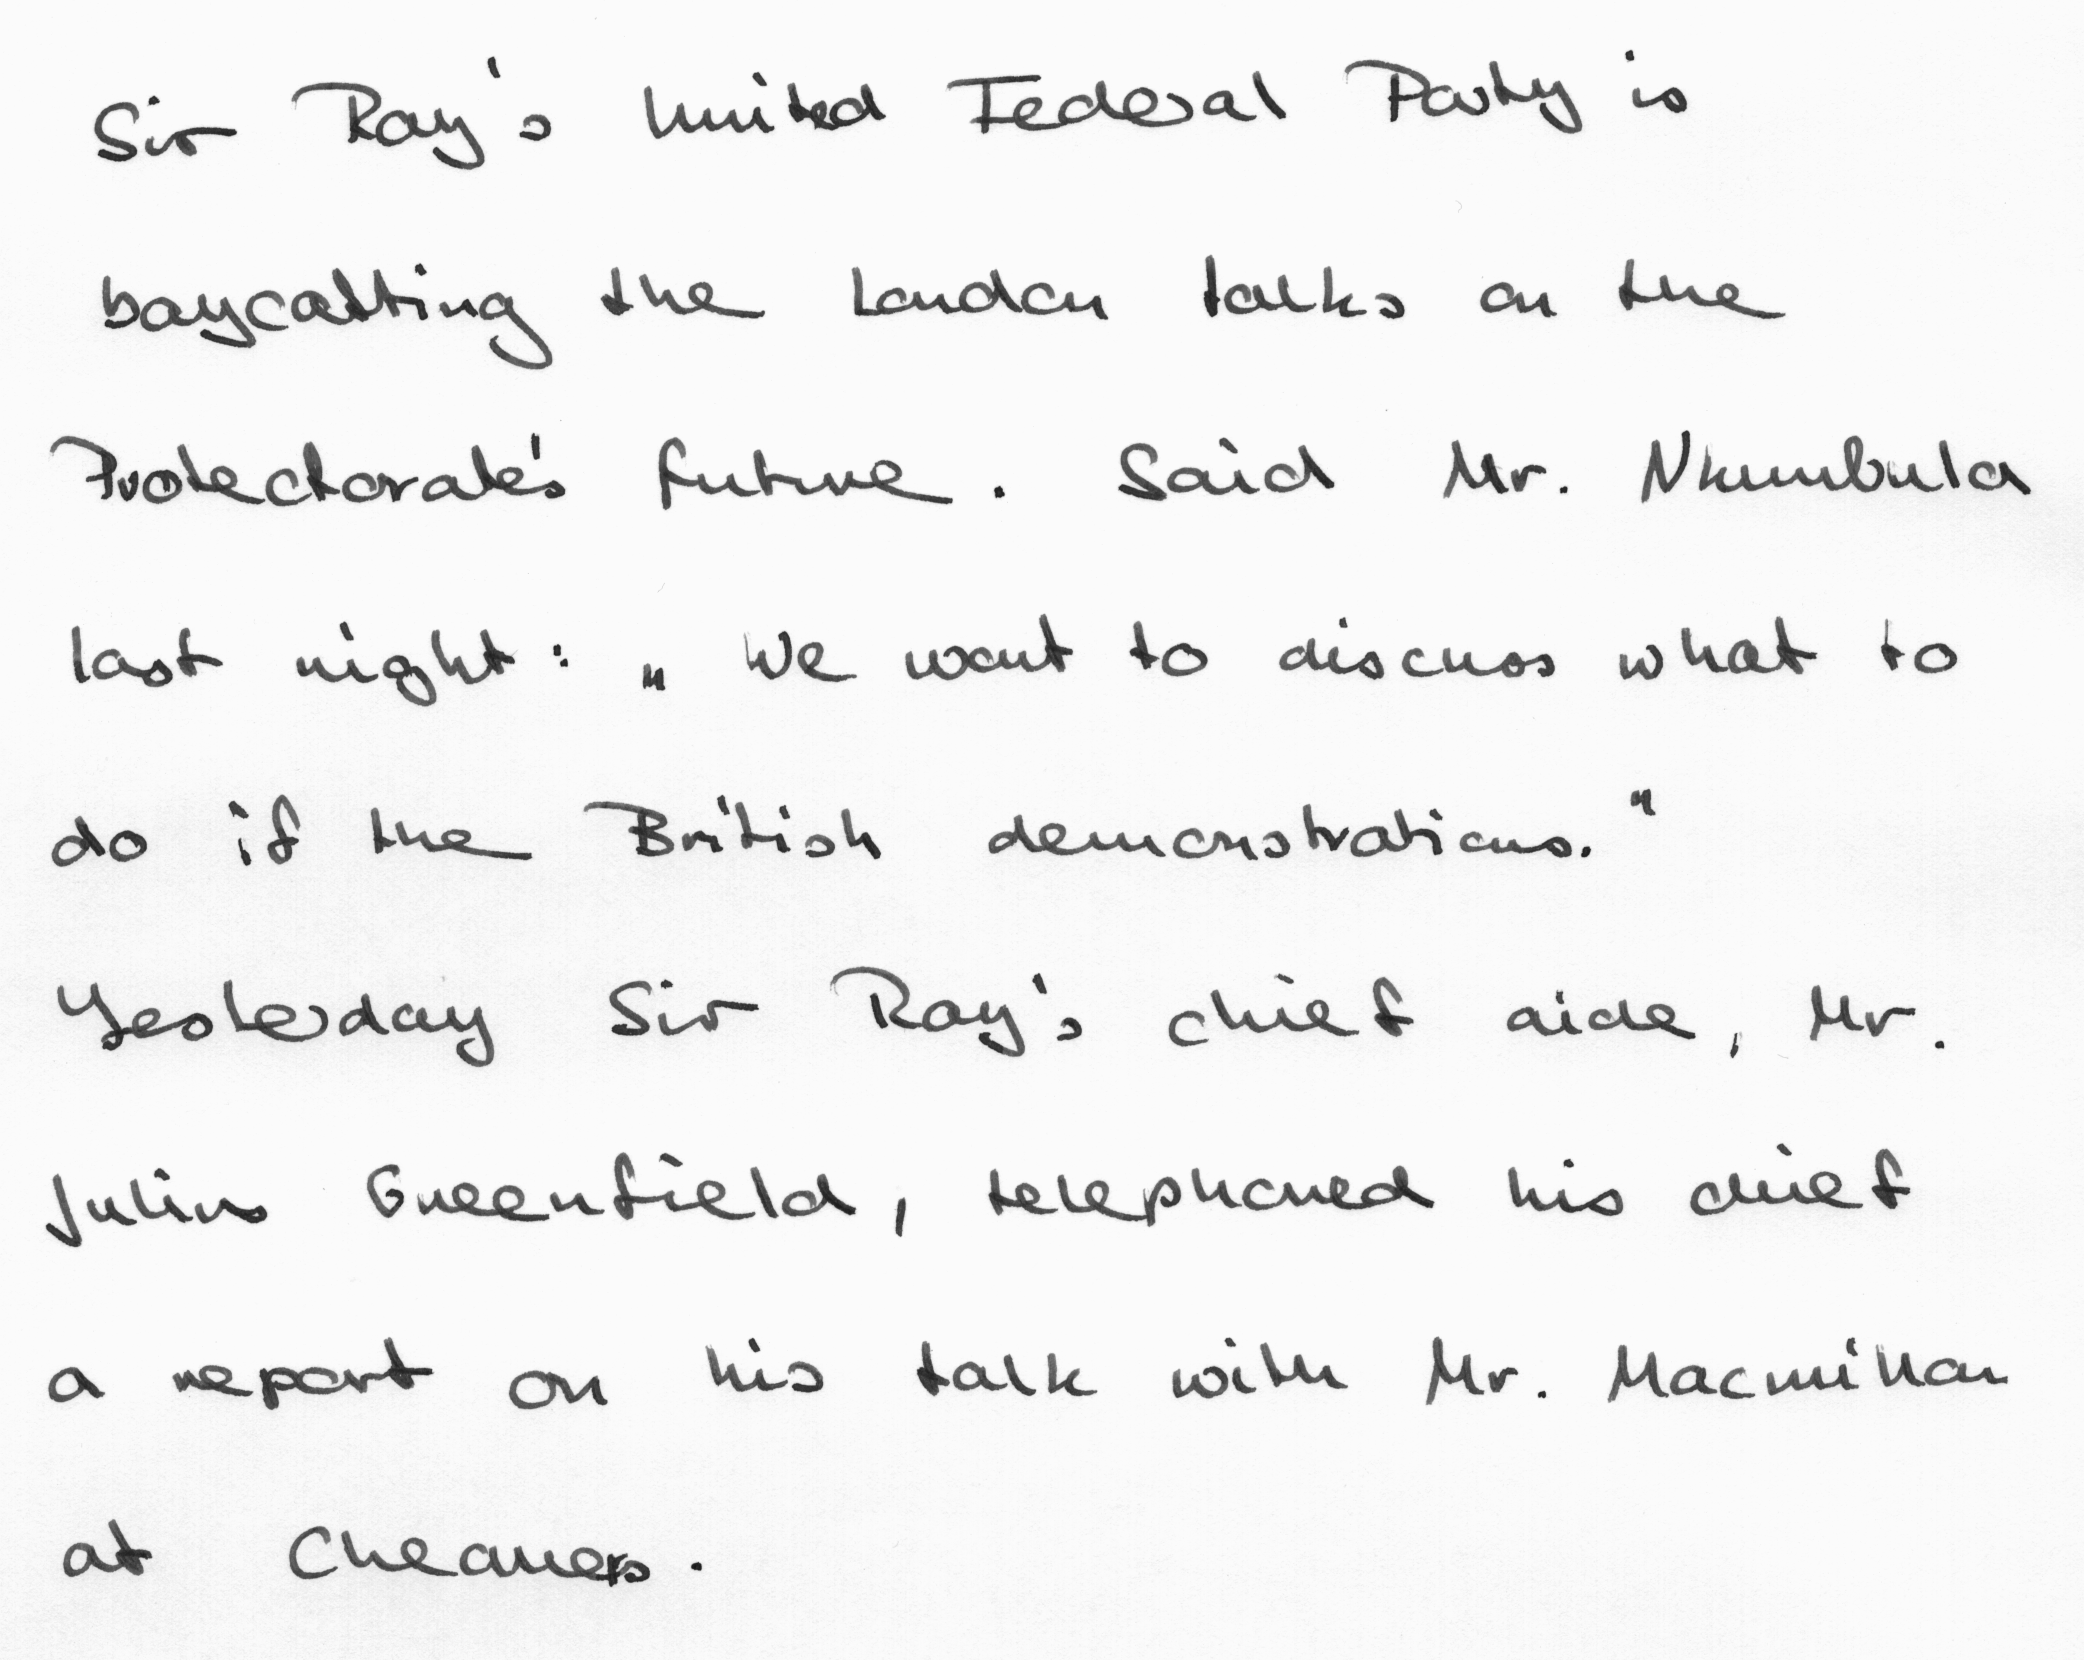 Sir Roy's United Federal Party is
boycotting the London talks on the
Protectorate's future. Said Mr. Nkumbula
last night: „We want to discuss what to
do if the British demonstrations."
Yesterday Sir Roy's chief aide, Mr.
Julius Greenfield, telephoned his chief
a report on his talk with Mr. Macmillan
at Cheaners.